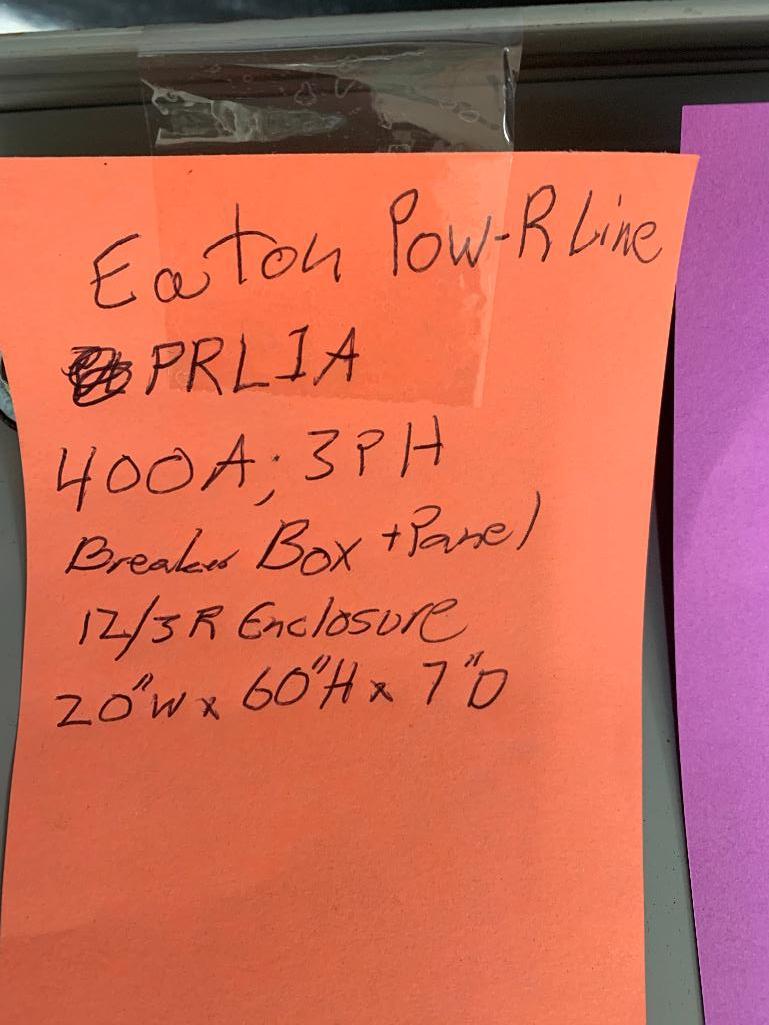 Eaton Pow-R Line
PRLIA
400A; 3PH
Breaker Box + Panel
12/3R Enclosure
20"W x 60"H x 7"D